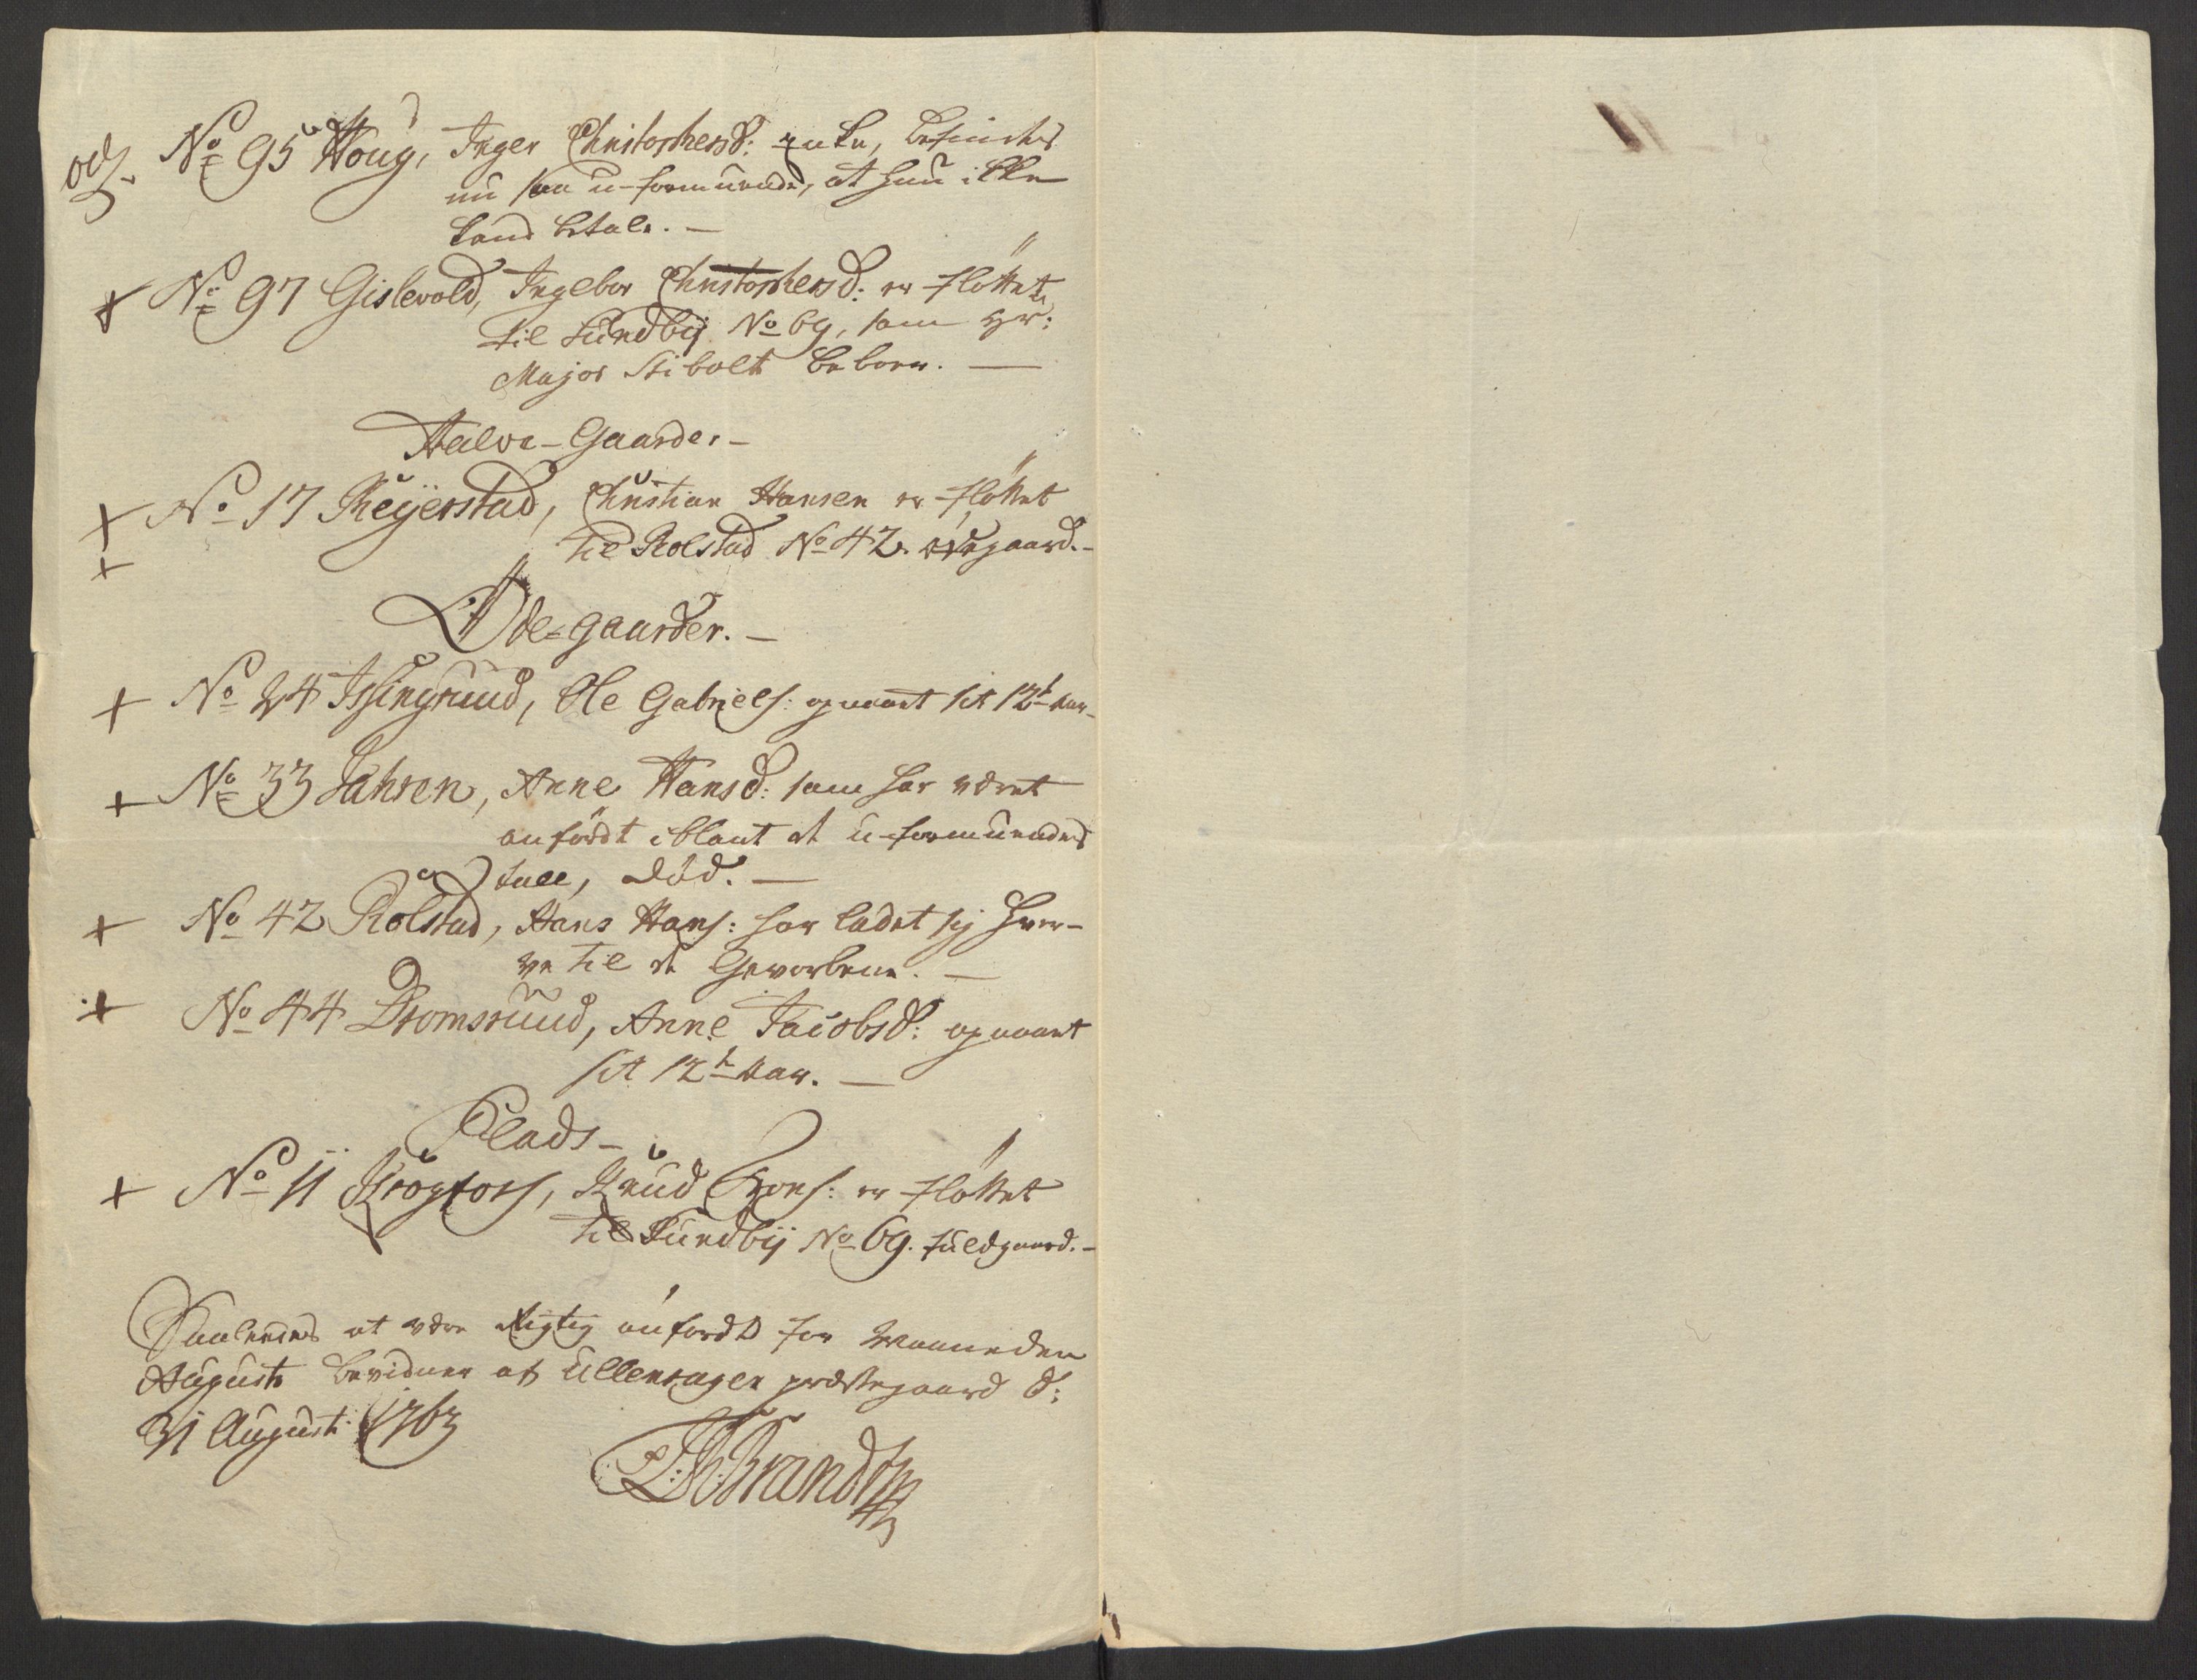 No 95 Houg, Inger Christophersd: enke, befindes
nu saa u-formuende, at hun ikke
kand betale. —
+ No 97 Gislevold, Ingebor Christophersd: er fløttet
til Sundbÿ No 69, som Hr:
Major Stibolt beboer. —
Halve-Gaarde. —
+ No 17 Reÿerstad, Christian Hansen er fløttet
+ til Rolstad No 42. ødegaard. —
Øde-gaarder. —
+ No 24 Islingruud, Ole Gabriels: opnaaet sit 12t Aar —
+ No 33 Jahren, Anne Hansd: som har været
anført iblant de u-formuendes
tall, død. —
+ No 42 Rolstad, Hans Hans: har ladet sig hver-
ve til de Gevorbene. —
+ No 44 Dromsruud, Anne Jacobsd: opnaaet
sit 12t Aar. —
Plads —
+ No 11 Krogfoss, Knud er fløttet
til Sundbÿ No 69. fuldgaard. —
Saaledes at være Rigtig anført for Maaneden
Augusti bevidner af Ullensager præstegaard d:
31 Augusti 1763
Brandt